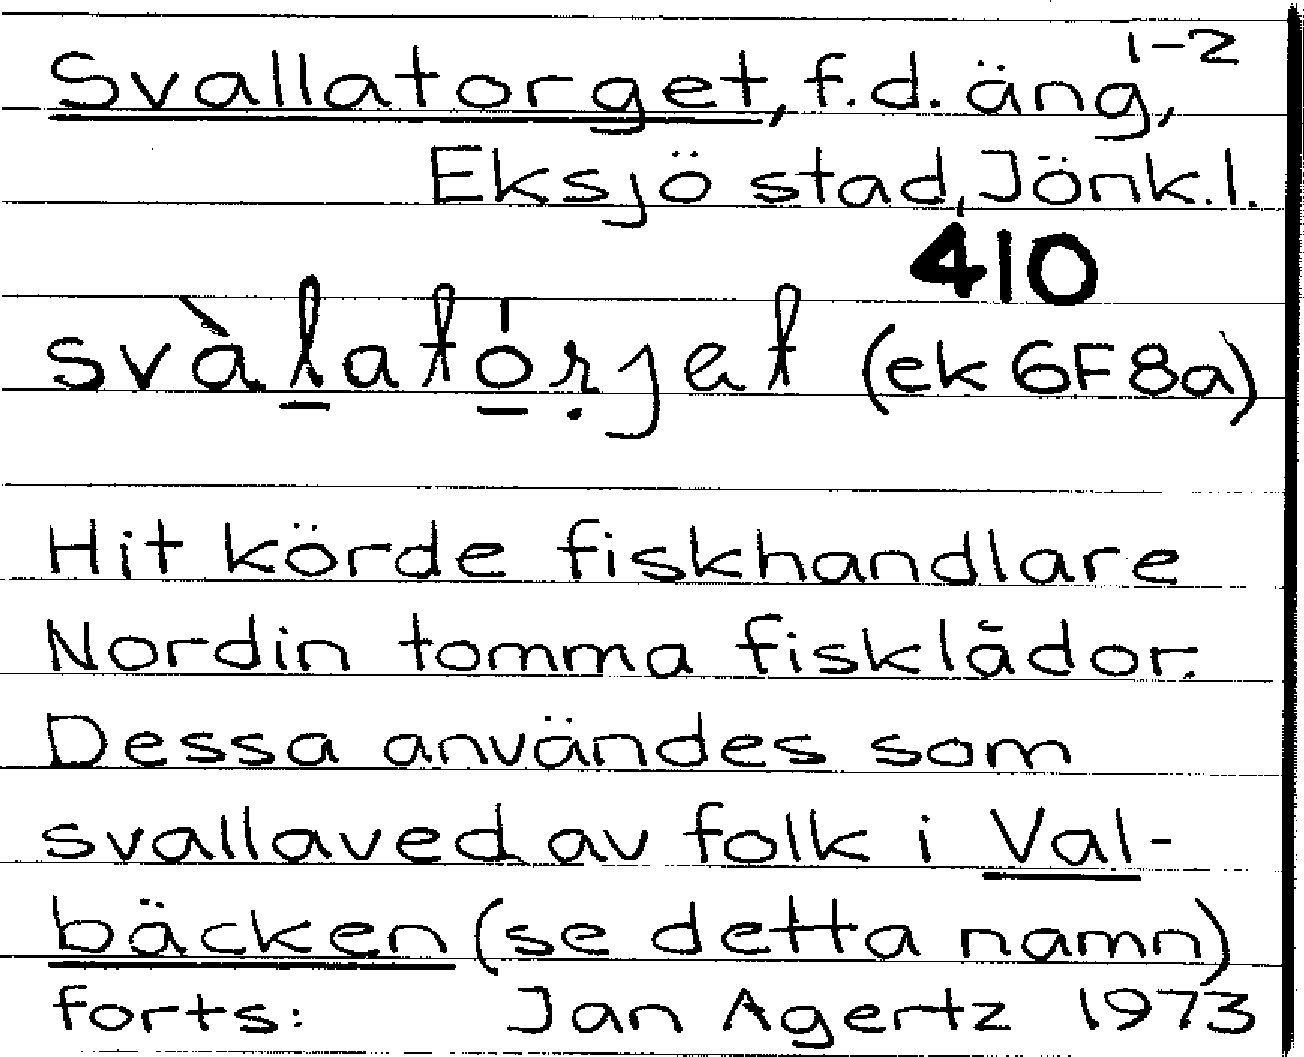 Svallatorget, f.d. äng, 1-2
Eksjö stad, Jönk.l.
410
svàlatórjet (ek 6F8a)
Hit körde fiskhandlare
Nordin tomma fisklådor.
Dessa användes som
svallaved av folk i Val-
bäcken (se detta namn)
forts: Jan Agertz 1973